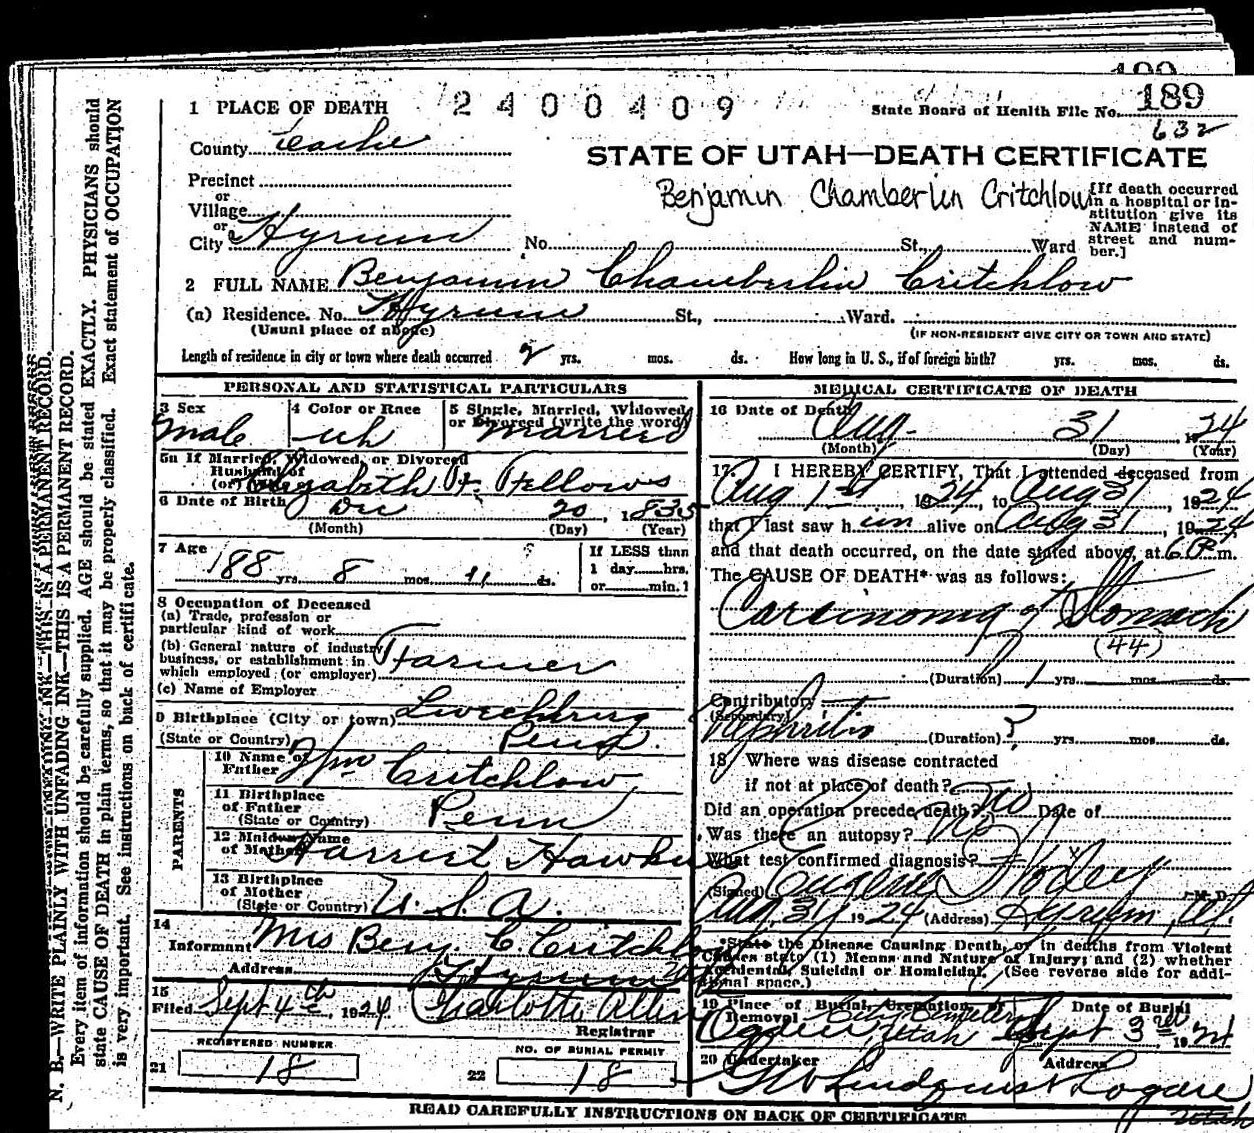 190
1 PLACE OF DEATH 2400409 State Board of Health File No. 189
632
County Cache
STATE OF UTAH—DEATH CERTIFICATE
Precinct
or
Village
or
City Hyrum No. St., Ward
Benjamin Chamberlin Critchlow
[If death occurred in a hospital or institution give its NAME instead of street and number.]
2 FULL NAME Benjamin Chamberlin Critchlow
(a) Residence. No. Hyrum St., Ward.
(Usual place of abode) (IF NON-RESIDENT GIVE CITY OR TOWN AND STATE)
Length of residence in city or town where death occurred yrs. mos. ds. How long in U. S., if of foreign birth? yrs. mos. ds.
PERSONAL AND STATISTICAL PARTICULARS
3 Sex 4 Color or Race 5 Single, Married, Widowed, or Divorced (write the word)
Male wh Married
5a If Married, Widowed, or Divorced
Husband of
(or) Elizabeth F. Fellows
6 Date of Birth Dec 20, 1835
(Month) (Day) (Year)
7 Age 88 yrs. 8 mos. 11 ds.
If LESS than
1 day......hrs.
or......min.
8 Occupation of Deceased
(a) Trade, profession or
particular kind of work
(b) General nature of industry
business, or establishment in
which employed (or employer) Farmer
(c) Name of Employer
9 Birthplace (City or town) Leechburg
(State or Country) Penn.
PARENTS
10 Name of
Father Wm Critchlow
11 Birthplace
of Father
(State or Country) Penn
12 Maiden Name
of Mother Harriet Hawkins
13 Birthplace
of Mother
(State or Country) U. S. A.
14
Informant Mrs Benj. C. Critchlow
Address Hyrum
15
Filed Sept 4th, 1924 Charlotte Allen
Registrar
REGISTERED NUMBER NO. OF BURIAL PERMIT
21 18 22 18
MEDICAL CERTIFICATE OF DEATH
16 Date of Death
Aug. 31, 1924
(Month) (Day) (Year)
17. I HEREBY CERTIFY, That I attended deceased from
Aug 1st, 1924, to Aug 31, 1924
that I last saw him alive on Aug 31, 1924
and that death occurred, on the date stated above, at 6 P m.
The CAUSE OF DEATH* was as follows:
Carcinoma of Stomach
(44)
(Duration) 1 yrs. mos. ds.
Contributory
(Secondary)
Nephritis (Duration) ? yrs. mos. ds.
18 Where was disease contracted
if not at place of death?
Did an operation precede death? No Date of
Was there an autopsy? No
What test confirmed diagnosis?
(Signed) Eugene H. M. D.
Aug 31, 1924 (Address) Hyrum, Ut.
*State the Disease Causing Death, or in deaths from Violent
Causes state (1) Means and Nature of Injury; and (2) whether
Accidental, Suicidal or Homicidal. (See reverse side for additional space.)
19 Place of Burial, Cremation, or Removal Date of Burial
Ogden City Cemetery Utah Sept 3rd 1924
20 Undertaker Address
G W Lindquist Logan
Utah
READ CAREFULLY INSTRUCTIONS ON BACK OF CERTIFICATE
N. B.—WRITE PLAINLY WITH UNFADING INK—THIS IS A PERMANENT RECORD.
Every item of information should be carefully supplied. AGE should be stated EXACTLY. PHYSICIANS should
state CAUSE OF DEATH in plain terms, so that it may be properly classified. Exact statement of OCCUPATION
is very important. See instructions on back of certificate.